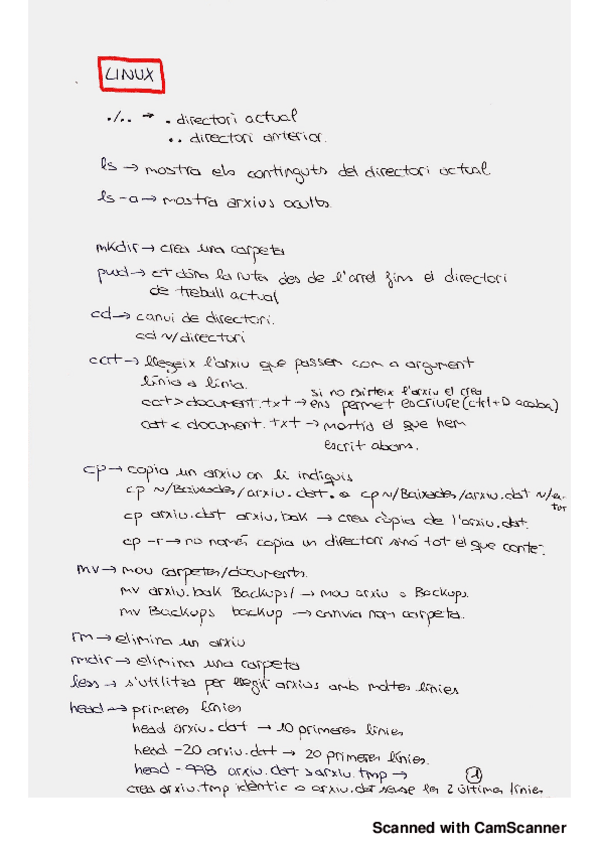 LINUX
./.. → . directori actual
.. directori anterior.
ls → mostra els continguts del directori actual
ls -a → mostra arxius ocults.
mkdir → crea una carpeta
pwd → et dóna la ruta des de l'arrel fins el directori
de treball actual
cd → canvi de directori.
cd ~/directori
cat → llegeix l'arxiu que passem com a argument
línia a línia.
si no existeix l'arxiu el crea
cat > document.txt → ens permet escriure (ctrl+D acaba)
cat < document.txt → mostra el que hem
escrit abans.
cp → copia un arxiu on li indiquis
cp ~/Baixades/arxiu.dat . o cp ~/Baixades/arxiu.dat
cp arxiu.dat arxiu.bak → crea còpia de l'arxiu.dat.
cp -r → no només copia un directori sinó tot el que conté.
mv → mou carpetes/documents.
mv arxiu.bak Backups/ → mou arxiu a Backups.
mv Backups backup → canvia nom carpeta.
rm → elimina un arxiu
rmdir → elimina una carpeta
less → s'utilitza per llegir arxius amb moltes línies
head → primeres línies
head arxiu.dat → 10 primeres línies
head -20 arxiu.dat → 20 primeres línies.
head -998 arxiu.dat > arxiu.tmp →
1
crea arxiu.tmp idèntic a arxiu.dat sense les 2 últimes línies.
Scanned with CamScanner